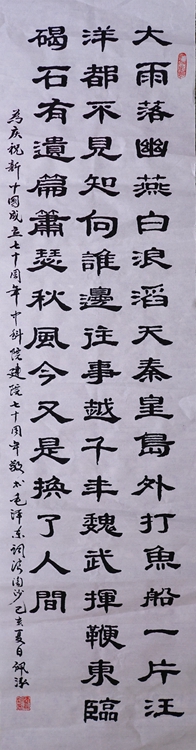 大雨落幽燕白浪滔天秦皇島外打魚船一片汪
洋都不見知向誰邊往事越千年魏武揮鞭東臨
碣石有遺篇蕭瑟秋風今又是換了人間
為庆祝新中國成立七十周年中科院建院七十周年敬书毛泽东詞浪淘沙己亥夏日